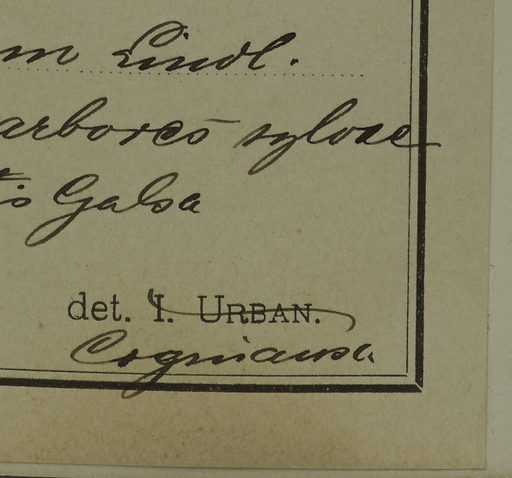 m Lindl.
arbores sylvae
is Galsa
det. I. URBAN.
Cogniaux.